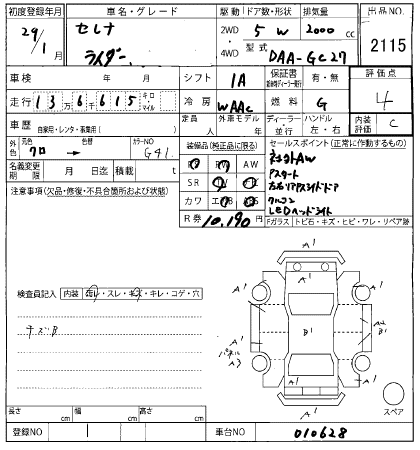 初度登録年月 車名・グレード 駆動 ドア数・形状 排気量 出品NO.
29/1月 セレナ 2WD 5 W 2000 cc 2115
ライダー 4WD 型式 DAA-GC27
車検 年 月 シフト IA 保証書 有・無 評価点
走行 13万6千615 キロ・マイル 冷房 WAAC 燃料 G 4
車歴 自家用・レンタ・事業用( ) 定員 人 外車モデル 年 ディーラー・並行 ハンドル 左・右 内装評価 C
外色 元色 クロ 色替 カラーNO G41 装備品(純正品に限る) セールスポイント(正常に動作するもの)
名義変更期限 月 日迄 積載 t AW 社外AW
注意事項(欠品・修復・不具合箇所および状態) SR Pスタート
カワ 左右パワスライドドア
R券 10,190円 クルコン
LEDヘッドライト
Fガラス トビ石・キズ・ヒビ・ワレ・リペア跡
検査員記入 内装 ・スレ・キズ・キレ・コゲ・穴
キズB
A1 A1 A1 A1 A1 B1 A2 B1 パネル A3 A1 A1 A1 A1
スペア
長さ cm 幅 cm 高さ cm
登録NO 車台NO 010628